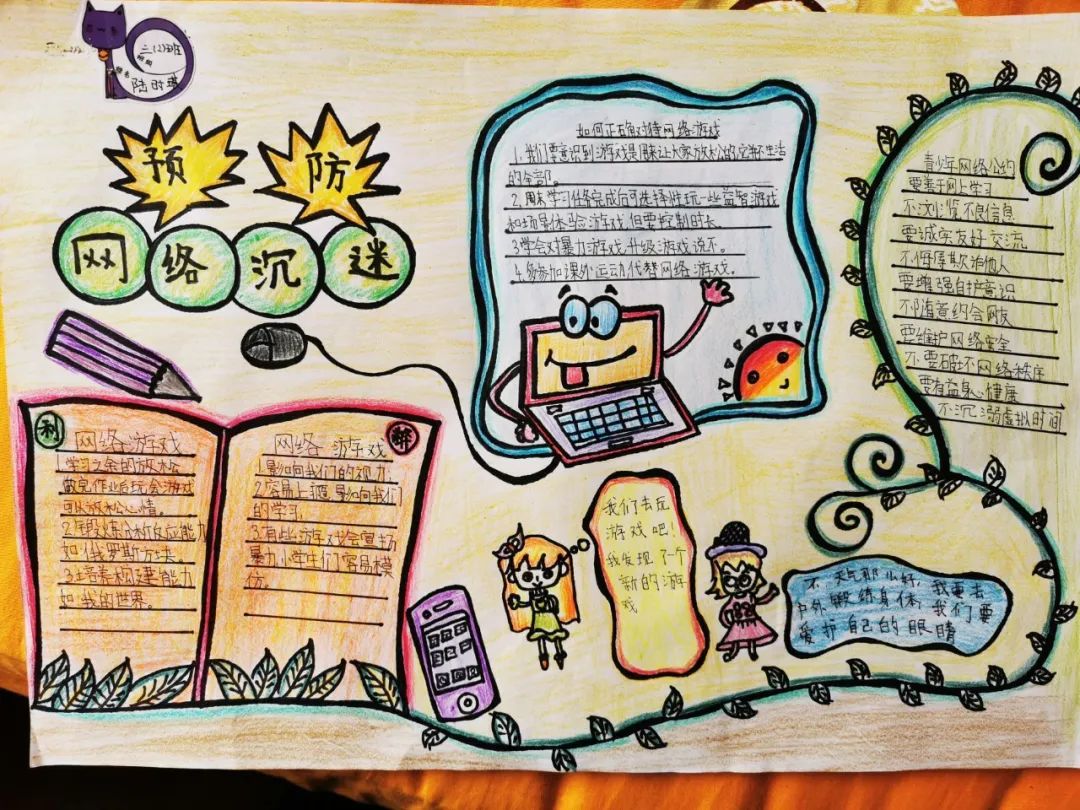 三(2)班
班级
姓名
陆时
预 防
网 络 沉 迷
如何正确对待网络游戏
1.我们要意识到游戏是用来让大家放松的,它并不是生活
的全部。
2.周末学习任务完成后可选择性玩一些益智游戏
和场景体验游戏,但要控制时长
3.学会对暴力游戏,升级游戏说不。
4.多参加课外运动代替网络游戏。
青少年网络公约
要善于网上学习
不浏览不良信息
要诚实友好交流
不侮辱欺诈他人
要增强自护意识
不随意约会网友
要维护网络安全
不要破坏网络秩序
要有益身心健康
不沉溺虚拟时间
利
网络游戏
1.学习之余的放松
做完作业后玩会游戏
可以放松心情。
2.锻炼分析反应能力
如《俄罗斯方法
3.培养构建能力
如 我的世界。
弊
网络 游戏
1.影响我们的视力
2.容易上瘾,影响我们
的学习
3.有些游戏会宣扬
暴力,小学生们容易模
仿。
我们去玩
游戏吧!
我发现了个
新的游
戏
不,天气那么好,我要去
户外锻炼身体,我们要
爱护自己的眼睛